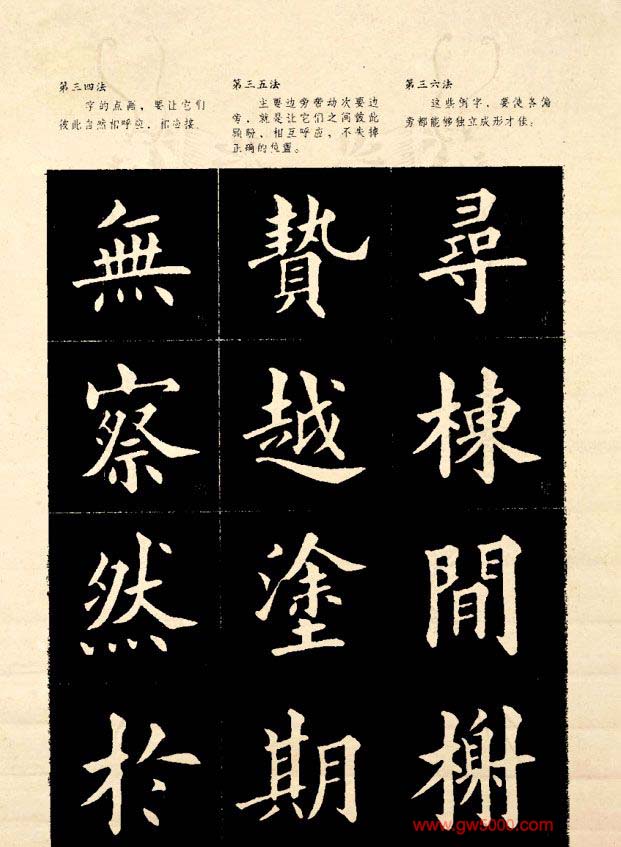 第三四法
字的点画，要让它们
彼此自然相呼应，相迎接。
第三五法
主要边旁带动次要边
旁，就是让它们之间彼此
顾盼、相互呼应，不失掉
正确的位置。
第三六法
这些例字，要使各偏
旁都能够独立成形才佳。
無
察
然
於
贄
越
塗
期
尋
棟
間
榭
www.gw5000.com